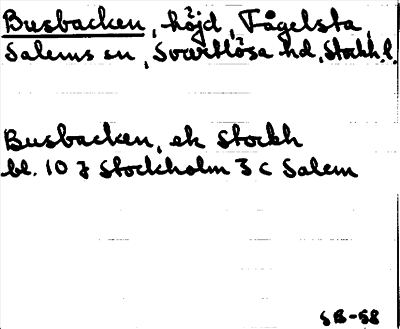 Busbacken, höjd, Fågelsta,
Salems sn, Svartlösa hd, Stockh.l.
Busbacken, ek Stockh
bl. 10 J Stockholm 3 c Salem
SB-58